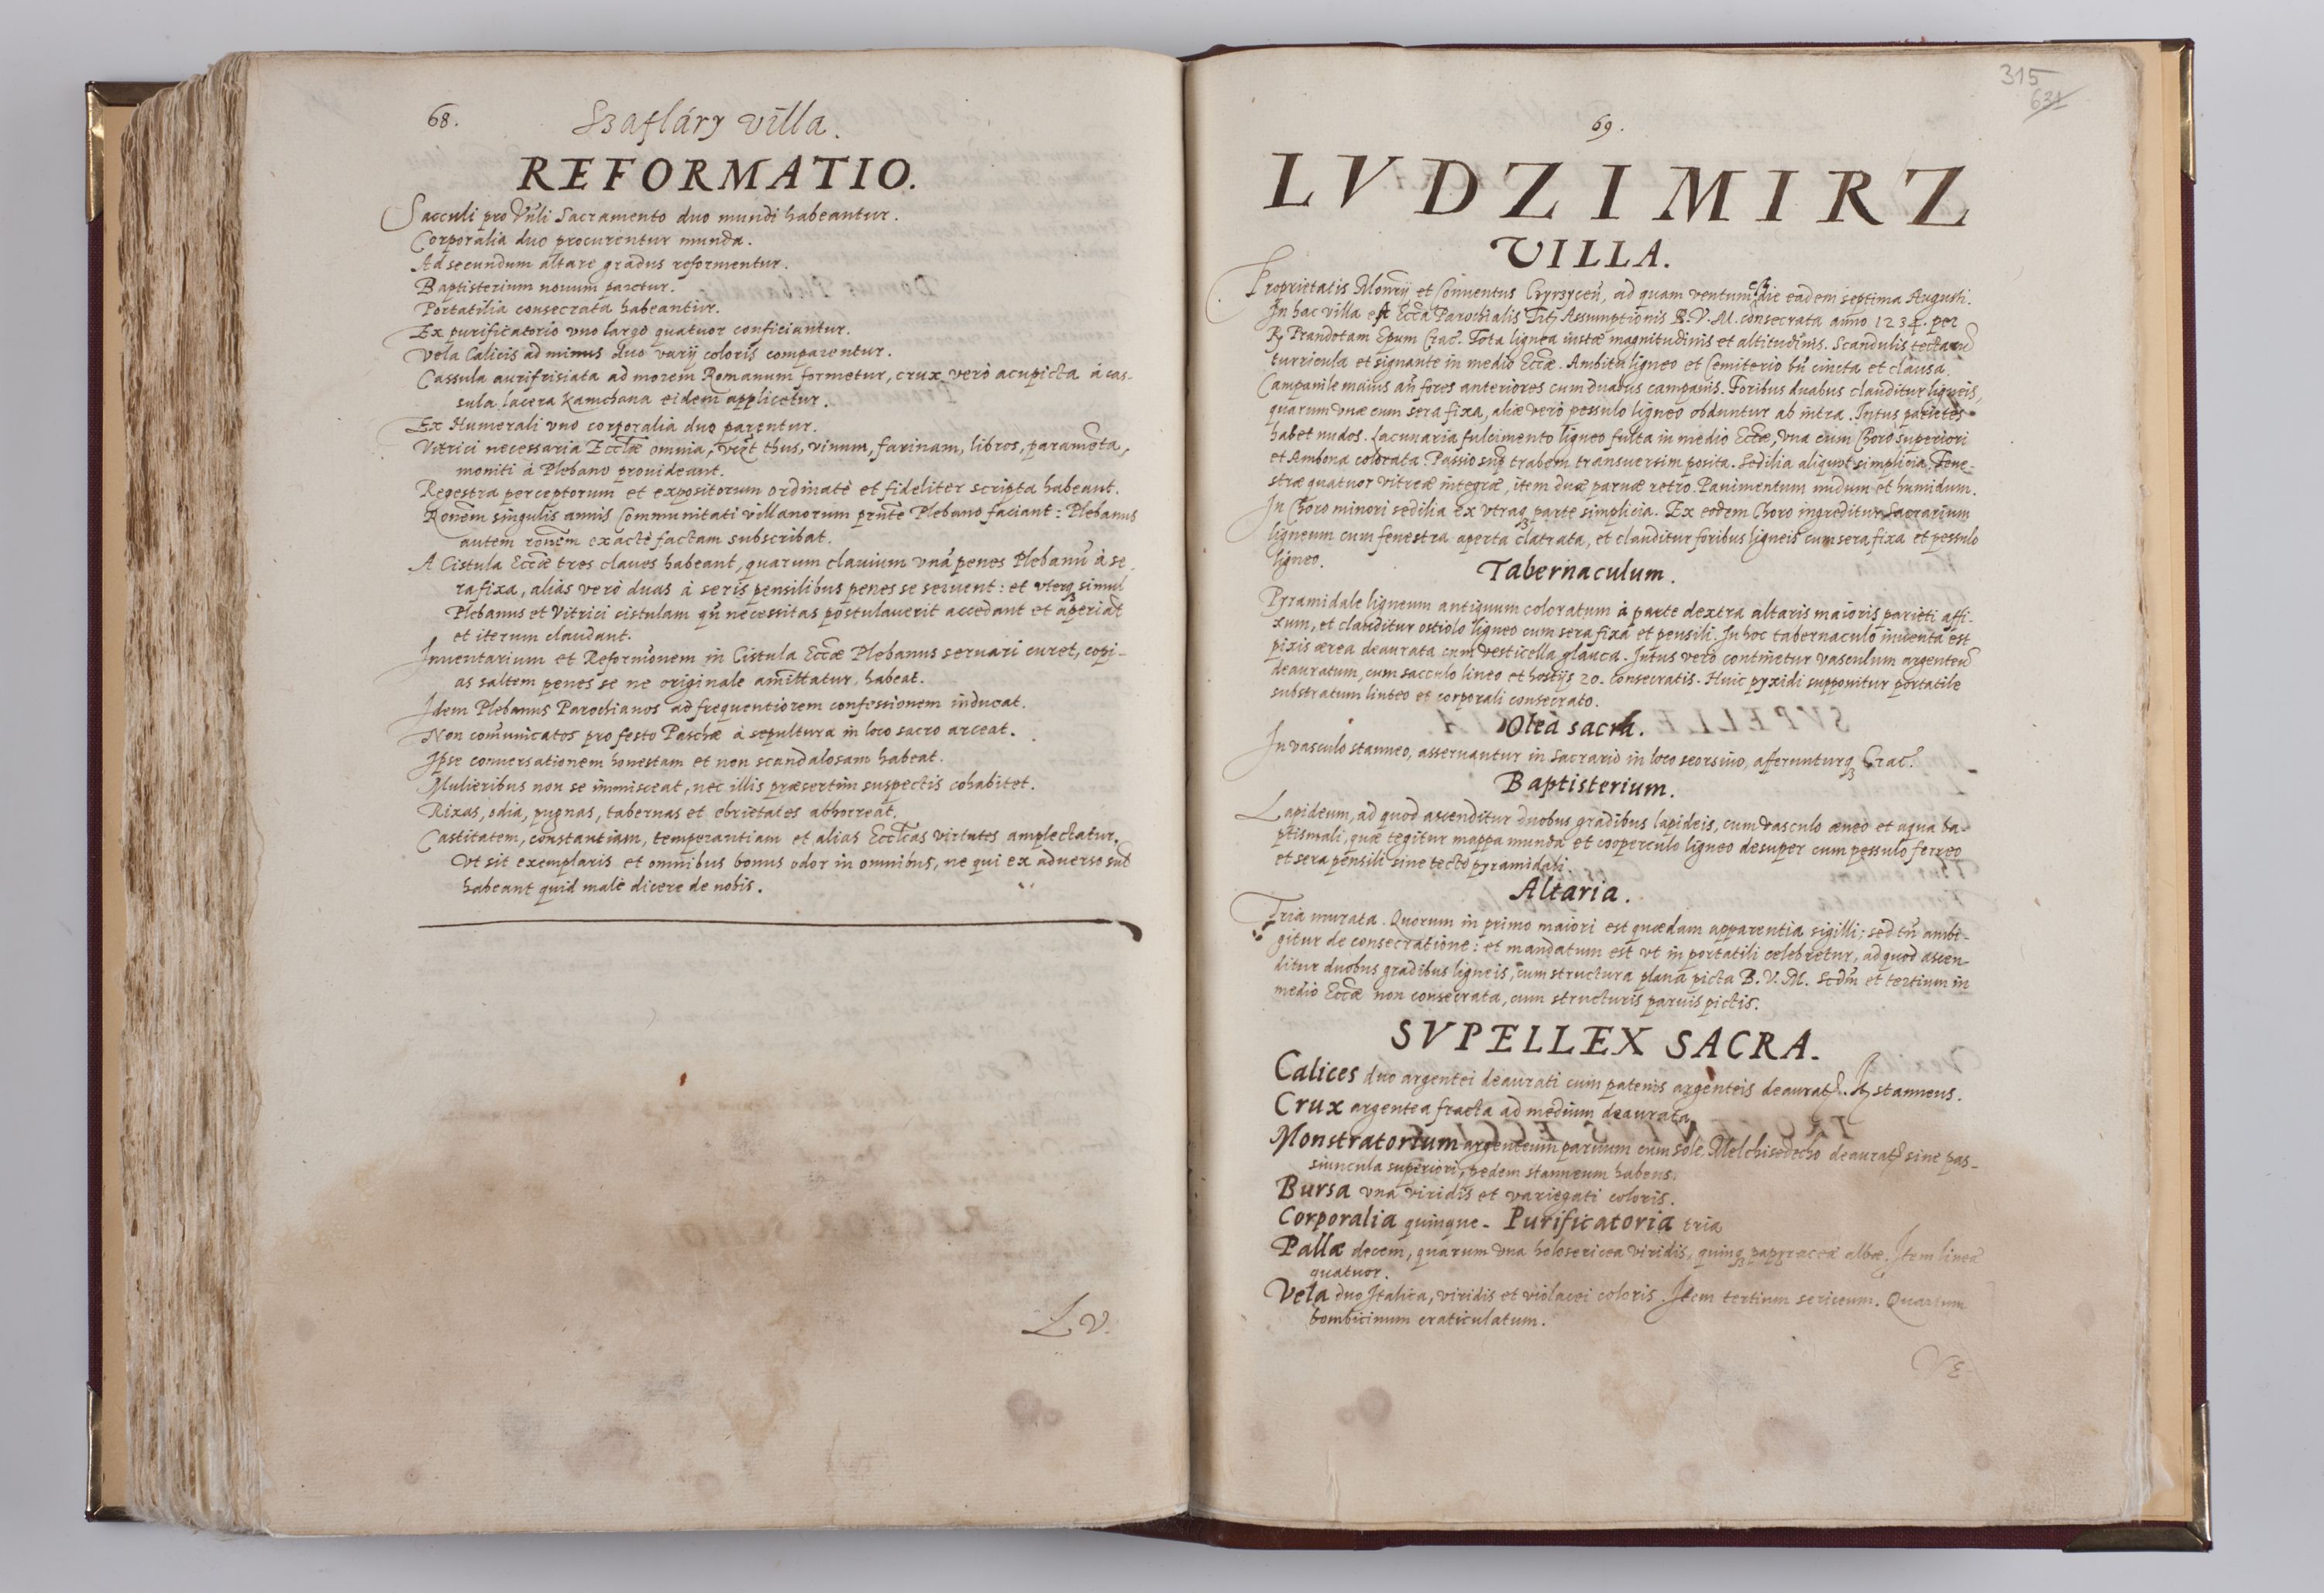 68.
Szafláry villa.
REFORMATIO.
Sacculi pro Vnli Sacramento duo mundi habeantur.
Corporalia duo procurentur munda.
Ad secundum altare gradus reformentur.
Baptisterium nouum paretur.
Portatilia consecrata habeantur.
Ex purificatorio vno largo quatuor conficiantur.
Vela Calicis ad minus duo varij coloris comparentur.
Cassula aurifrisiata ad morem Romanum formetur, crux verò acupicta à cas-
sula lacera Kamchana eidem applicetur.
Ex Humerali vno corporalia duo parentur.
Vitrici necessaria Eccłæ omnia, thus, vinum, farinam, libros, paramēta,
moniti à Plebano prouideant.
Regestra perceptorum et expositorum ordinatè et fideliter scripta habeant.
Ronem singulis annis Communitati villanorum pnte Plebano faciant: Plebanus
autem ronem exactè factam subscribat.
A Cistula Eccæ tres claues habeant, quarum clauium vnā penes Plebanū à se-
ra fixa, alias verò duas à seris pensilibus penes se seruent: et vterq3 simul
Plebanus et Vitrici cistulam qn necessitas postulauerit accedant et aperiāt
et iterum claudant.
Inuentarium et Reformonem in Cistula Eccæ Plebanus seruari curet, copi-
as saltem penes se ne originale amittatur, habeat.
Idem Plebanus Parochianos ad frequentiorem confessionem inducat.
Non comunicatos pro festo Paschæ à sepultura in loco sacro arceat.
Ipse conuersationem honestam et non scandalosam habeat.
Mulieribus non se immisceat, nec illis præsertim suspectis cohabitet.
Rixas, odia, pugnas, tabernas et ebrietates abhorreat.
Castitatem, constantiam, temperantiam et alias Eccłcas virtutes amplectatur.
Vt sit exemplaris et omnibus bonus odor in omnibus, ne qui ex aduerso sut
habeant quid malè dicere de nobis.
LV.
315
631
69.
LVDZIMIRZ
VILLA.
Proprietatis Monrij et Conuentus Czyrzycen, ad quam ventum est die eadem septima Augusti.
In hac villa est Ecca Parochialis Tit Assumptionis B.V.M. consecrata anno 1234. per
R. Prandotam Epum Crac. Tota lignea iustæ magnitudinis et altitudinis. Scandulis tecta cū
turricula et signante in medio Eccæ. Ambitu ligneo et Cemiterio bn cincta et clausa.
Campanile maius an fores anteriores cum duabus campanis. Foribus duabus clauditur ligneis,
quarum vnæ cum sera fixa, aliæ verò pessulo ligneo obduntur ab intra. Intus parietes
habet nudos. Lacunaria fulcimento ligneo fulta in medio Eccæ, vna cum Choro superiori
et Ambona colorata. Passio sup trabem transuersim posita. Sedilia aliquot simplicia, Fene-
stræ quatuor vitreæ integræ, item duæ paruæ retro. Pauimentum nudum et humidum.
In Choro minori sedilia ex vtraq3 parte simplicia. Ex eodem Choro ingreditur Sacrarium
ligneum cum fenestra aperta clatrata, et clauditur foribus ligneis cum sera fixa et pessulo
ligneo.
Tabernaculum.
Pyramidale ligneum antiquum coloratum à parte dextra altaris maioris parieti affi-
xum, et clauditur ostiolo ligneo cum sera fixa et pensili. In hoc tabernaculo inuenta est
pixis ærea deaurata cum vesticella glauca. Intus verò continetur vasculum argenteū
deauratum, cum sacculo lineo et hostijs 20. consecratis. Huic pyxidi supponitur portatile
substratum linteo et corporali consecrato.
Olea sacra.
In vasculo stanneo, asseruantur in Sacrario in loco seorsiuo, aferunturq3 Crac.
Baptisterium.
Lapideum, ad quod ascenditur duobus gradibus lapideis, cum vasculo æneo et aqua ba-
ptismali, quæ tegitur mappa munda et cooperculo ligneo desuper cum pessulo ferreo
et sera pensili sine tecto pyramidali.
Altaria.
Tria murata. Quorum in primo maiori est quædam apparentia sigilli; sed tn ambi-
gitur de consecratione: et mandatum est vt in portatili celebretur, ad quod ascen-
ditur duobus gradibus ligneis, cum structura plana picta B.V.M. Scdm et tertium in
medio Eccæ non consecrata, cum structuris paruis pictis.
SVPELLEX SACRA.
Calices duo argentei deaurati cum patenis argenteis deaurat. It stanneus.
Crux argentea fracta ad medium deaurata.
Monstratorium argenteum paruum cum sole, Melchisedecho deaurat sine pas-
siuncula superiori, pedem stanneum habens.
Bursa vna viridis et variegati coloris.
Corporalia quinque. Purificatoria tria
Pallæ decem, quarum vna holosericea viridis, quinq3 papyraceæ albæ. Item lineæ
quatuor.
Vela duo Italica, viridis et violacei coloris. Item tertium sericeum. Quartum
bombicinum craticulatum.
VE-